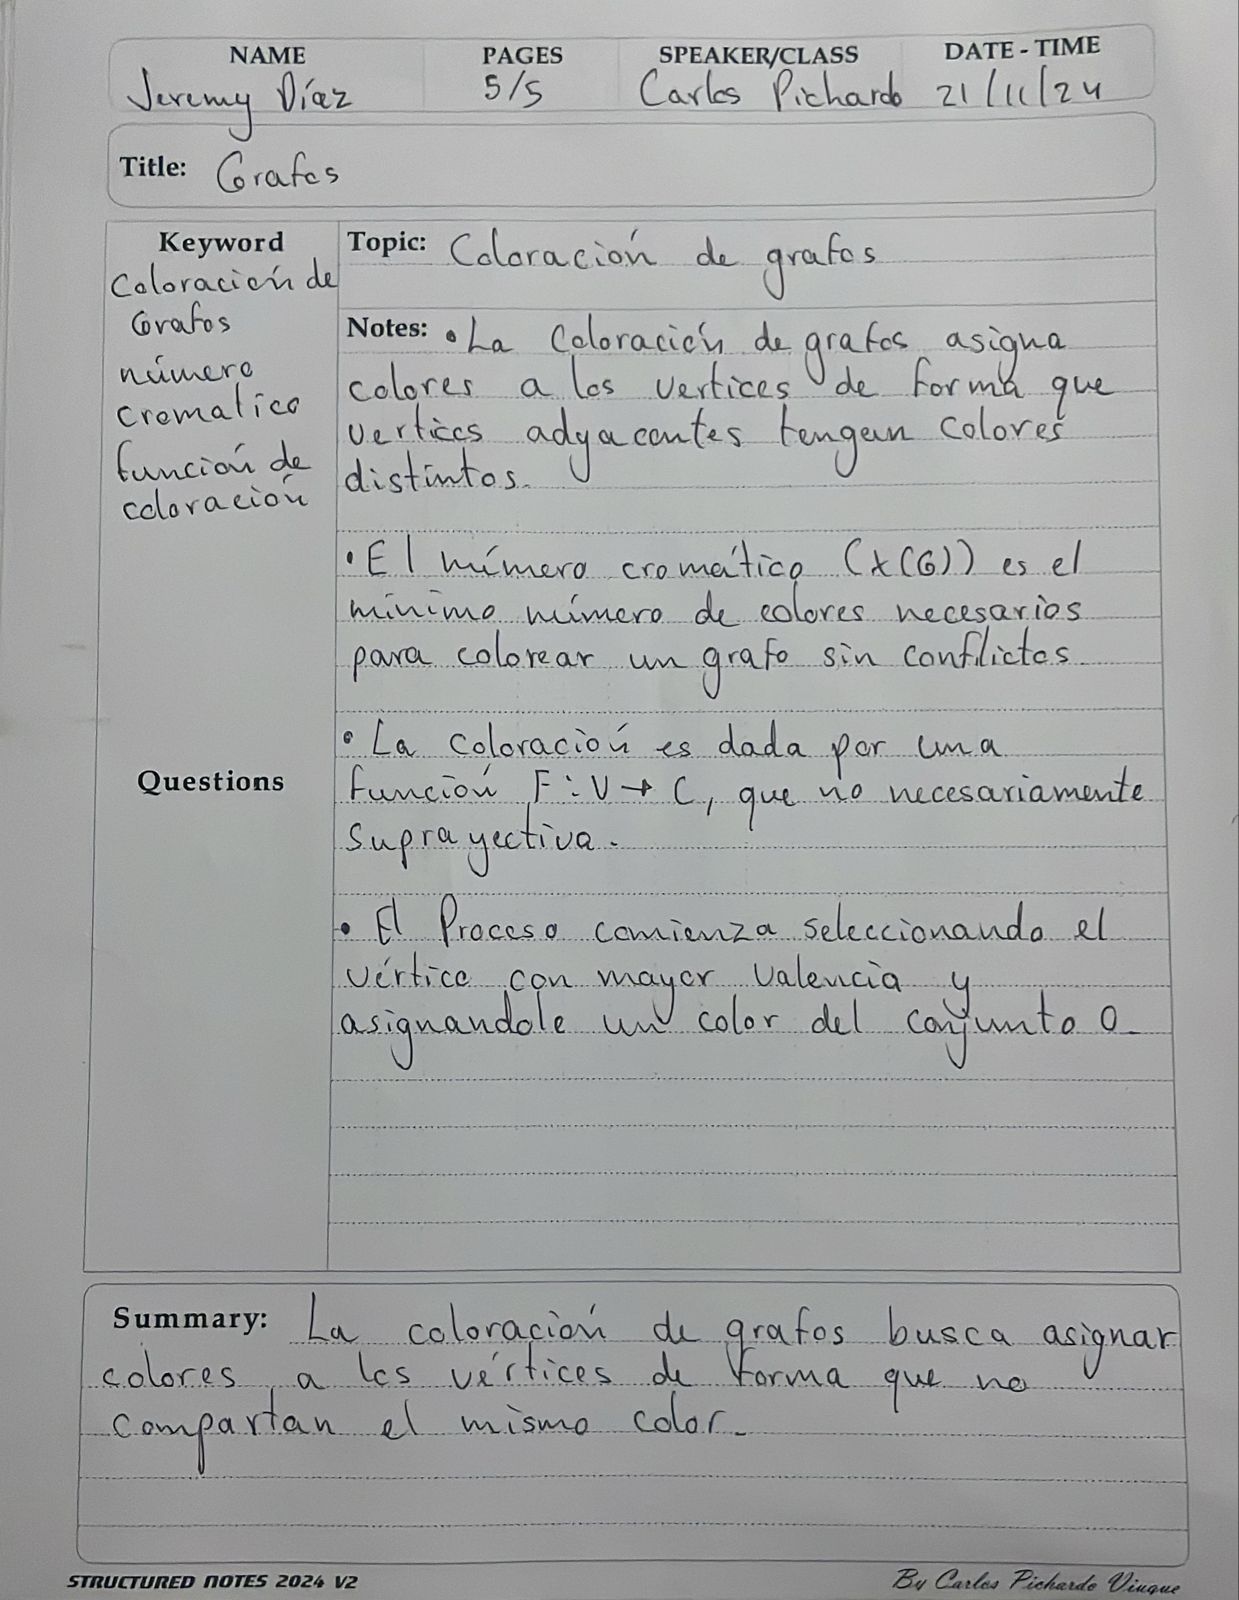 NAME PAGES SPEAKER/CLASS DATE - TIME
Jeremy Díaz 5/5 Carlos Pichardo 21/11/24
Title: Grafos
Keyword
Coloración de
Grafos
número
cromatico
función de
coloración
Topic: Coloración de grafos
Notes: • La Coloración de grafos asigna
colores a los vertices de forma que
vertices adyacentes tengan colores
distintos.
• El número cromático (x(G)) es el
mínimo número de colores necesarios
para colorear un grafo sin conflictos
• La coloración es dada por una
función F: V → C, que no necesariamente
suprayectiva.
• El Proceso comienza seleccionando el
vértice con mayor valencia y
asignandole un color del conjunto O.
Questions
Summary: La coloración de grafos busca asignar
colores a los vértices de forma que no
compartan el mismo color.
STRUCTURED NOTES 2024 V2
By Carlos Pichardo Viuque